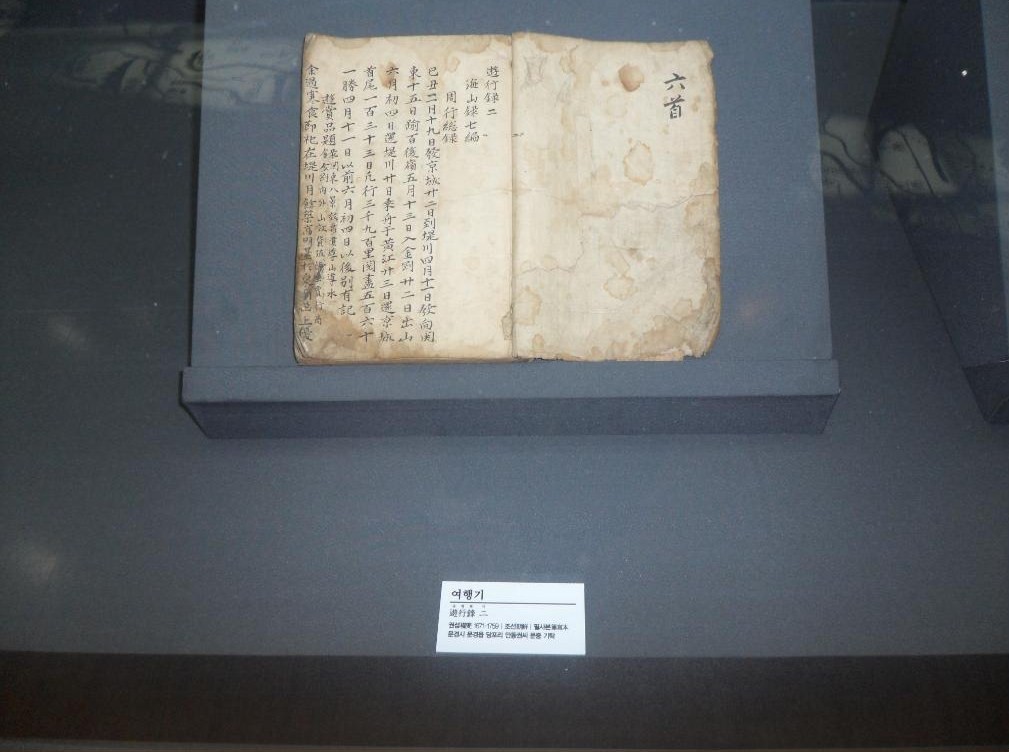 六首
遊行錄二
海山錄七編
周行總錄
己丑二月十九日發京城廿二日到堤川四月十一日發向関
東十五日踰百復嶺五月十三日入金剛廿二日出山
六月初四日還堤川廿日乘舟于黃江廿三日還京城
首尾一百三十三日凡行三千九百里閱盡五百六十
一勝四月十一日以前六月初四日以後別有記
遊賞品題
金過寒食即化在堤川月餘
여행기
遊行錄 二
권섭權燮 1671-1759 | 조선朝鮮 | 필사본筆寫本
문경시 문경읍 당포리 안동권씨 문중 기탁